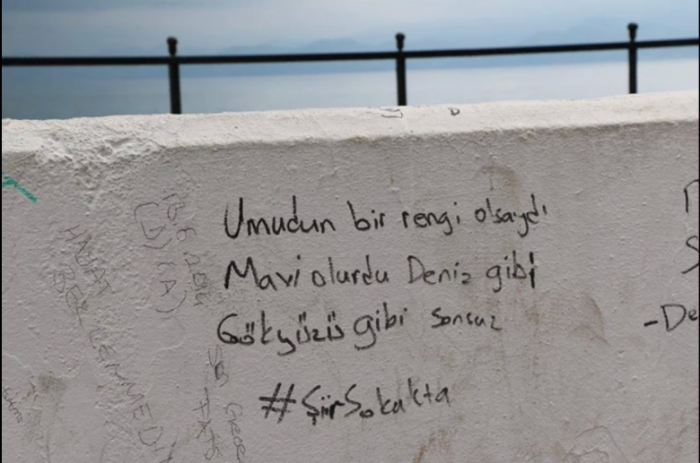 Umudun bir rengi olsaydı
Mavi olurdu Deniz gibi
Gökyüzü gibi sonsuz
#ŞiirSokakta
-De